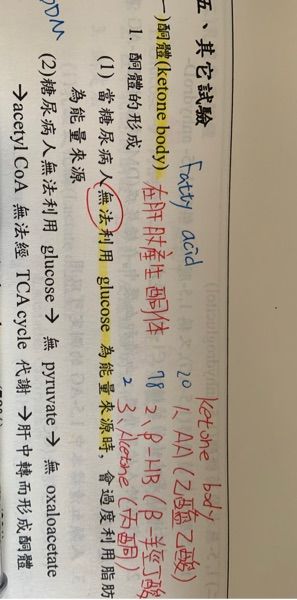 五、其它試驗
Fatty acid
ketone body
一)酮體(ketone body) 在肝脏產生酮体
20 1、AA(乙醯乙酸)
1. 酮體的形成
78 2、β-HB(β-羥丁酸)
2 3、Acetone(丙酮)
(1) 當糖尿病人無法利用 glucose 為能量來源時,會過度利用脂肪
為能量來源
DM
(2)糖尿病人無法利用 glucose→ 無 pyruvate→ 無 oxaloacetate
→acetyl CoA 無法經 TCA cycle 代謝 →肝中轉而形成酮體